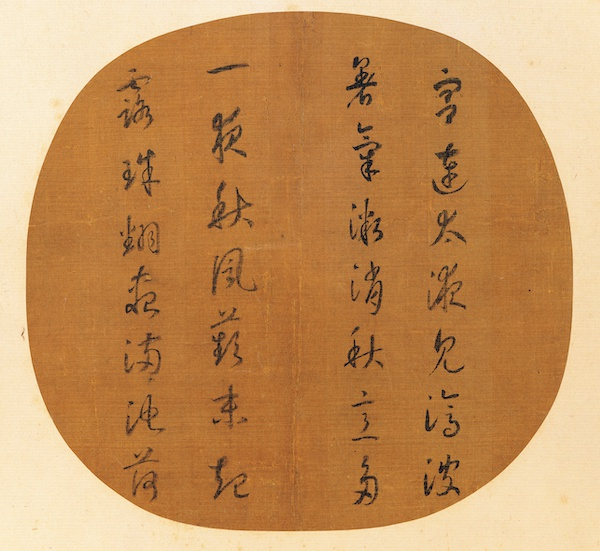 宮連太液見滄波
暑氣微消秋意多
一夜秋風蘋末起
露珠翻盡滿池荷